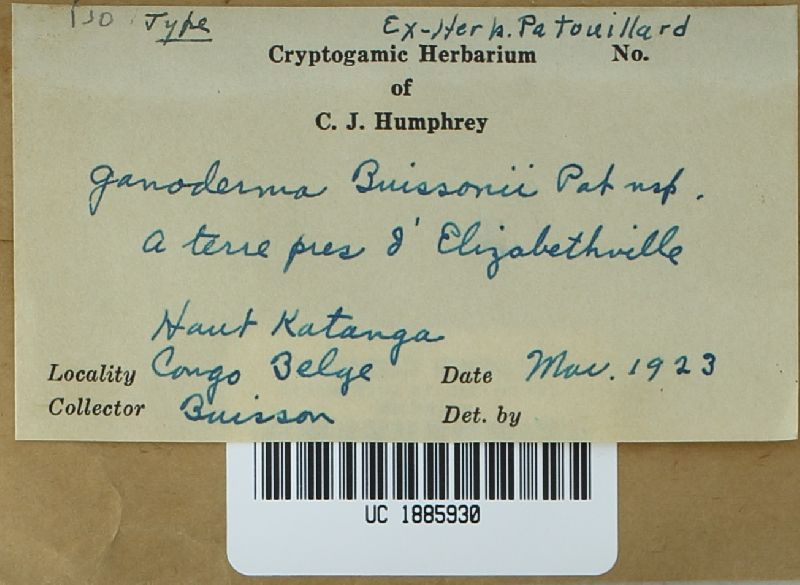 Iso Type Ex-Herb. Patouillard
Cryptogamic Herbarium No.
of
C. J. Humphrey
Ganoderma Buissonii Pat nsp.
a terre pres d' Elizabethville
Haut Katanga
Locality Congo Belge Date Mar. 1923
Collector Buisson Det. by
UC 1885930